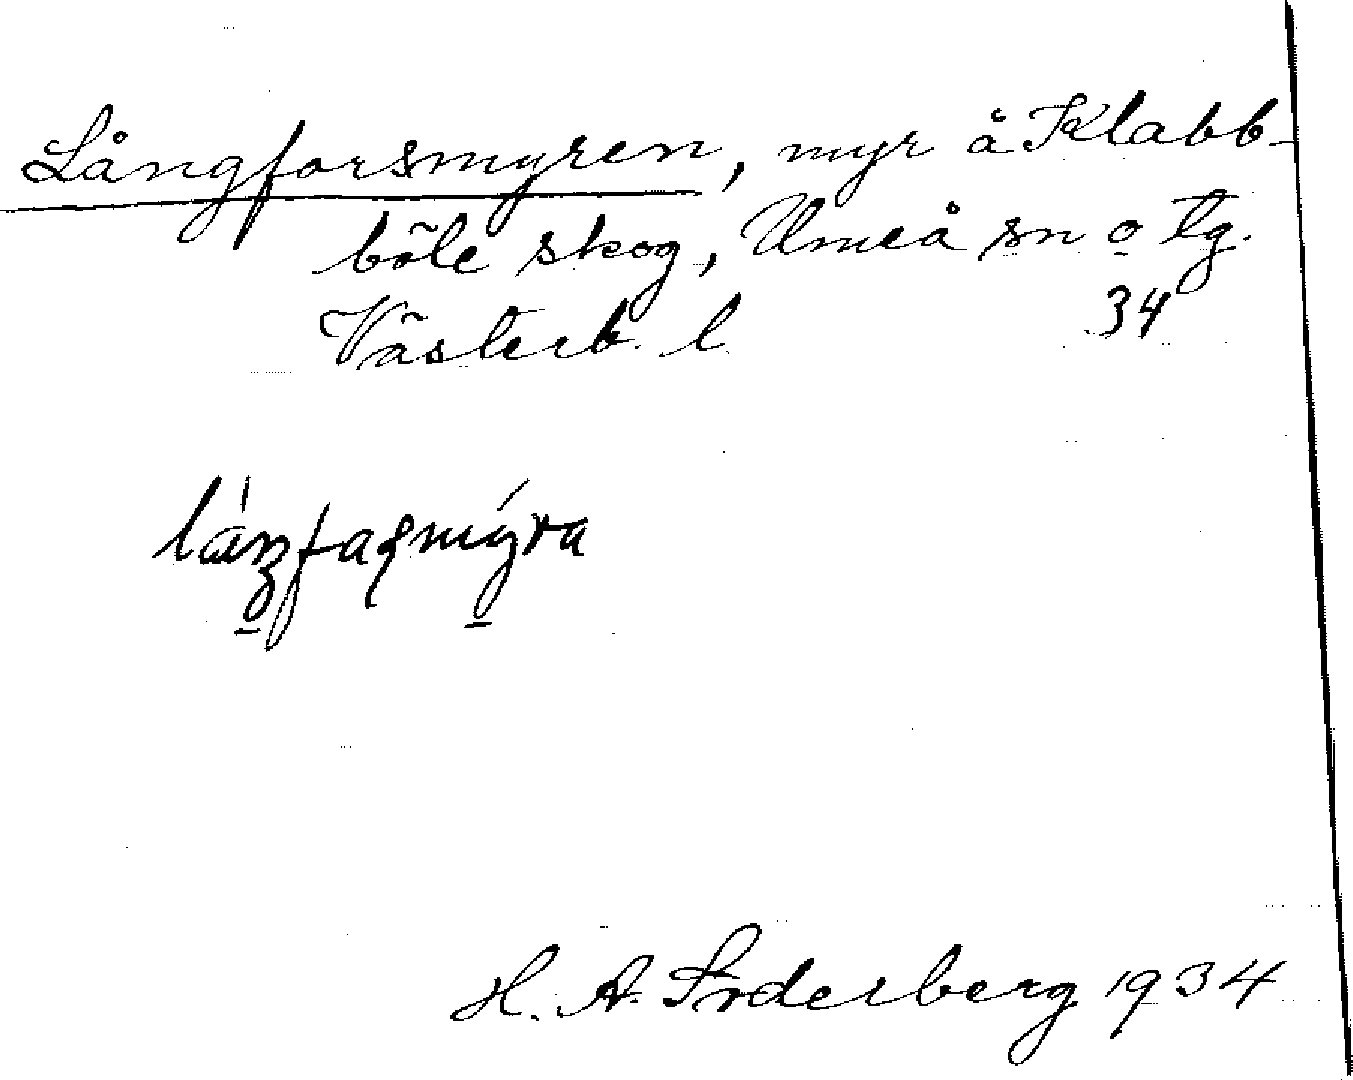 Långforsmyren, myr å Klabb-
böle skog, Umeå sn o tg.
Västerb. l 34
H. A. Söderberg 1934